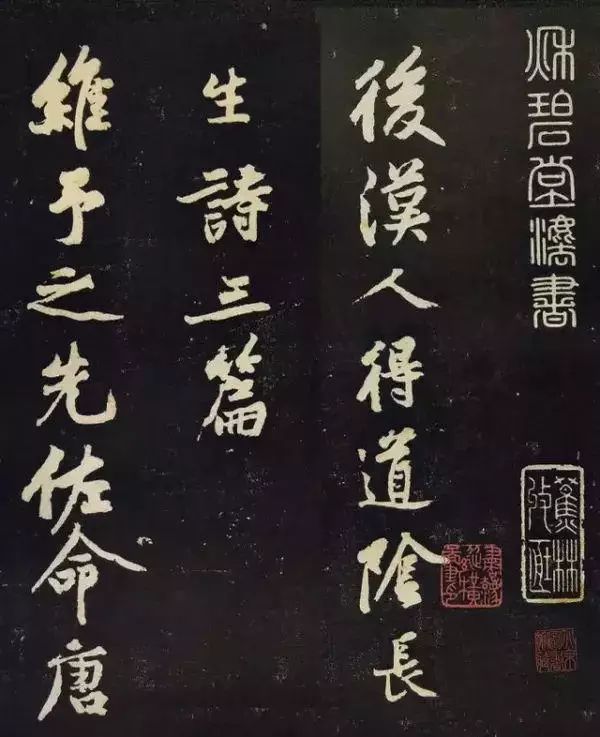 秋碧堂灋書
蕉林
後漢人得道陰長
生詩三篇
維予之先佐命唐